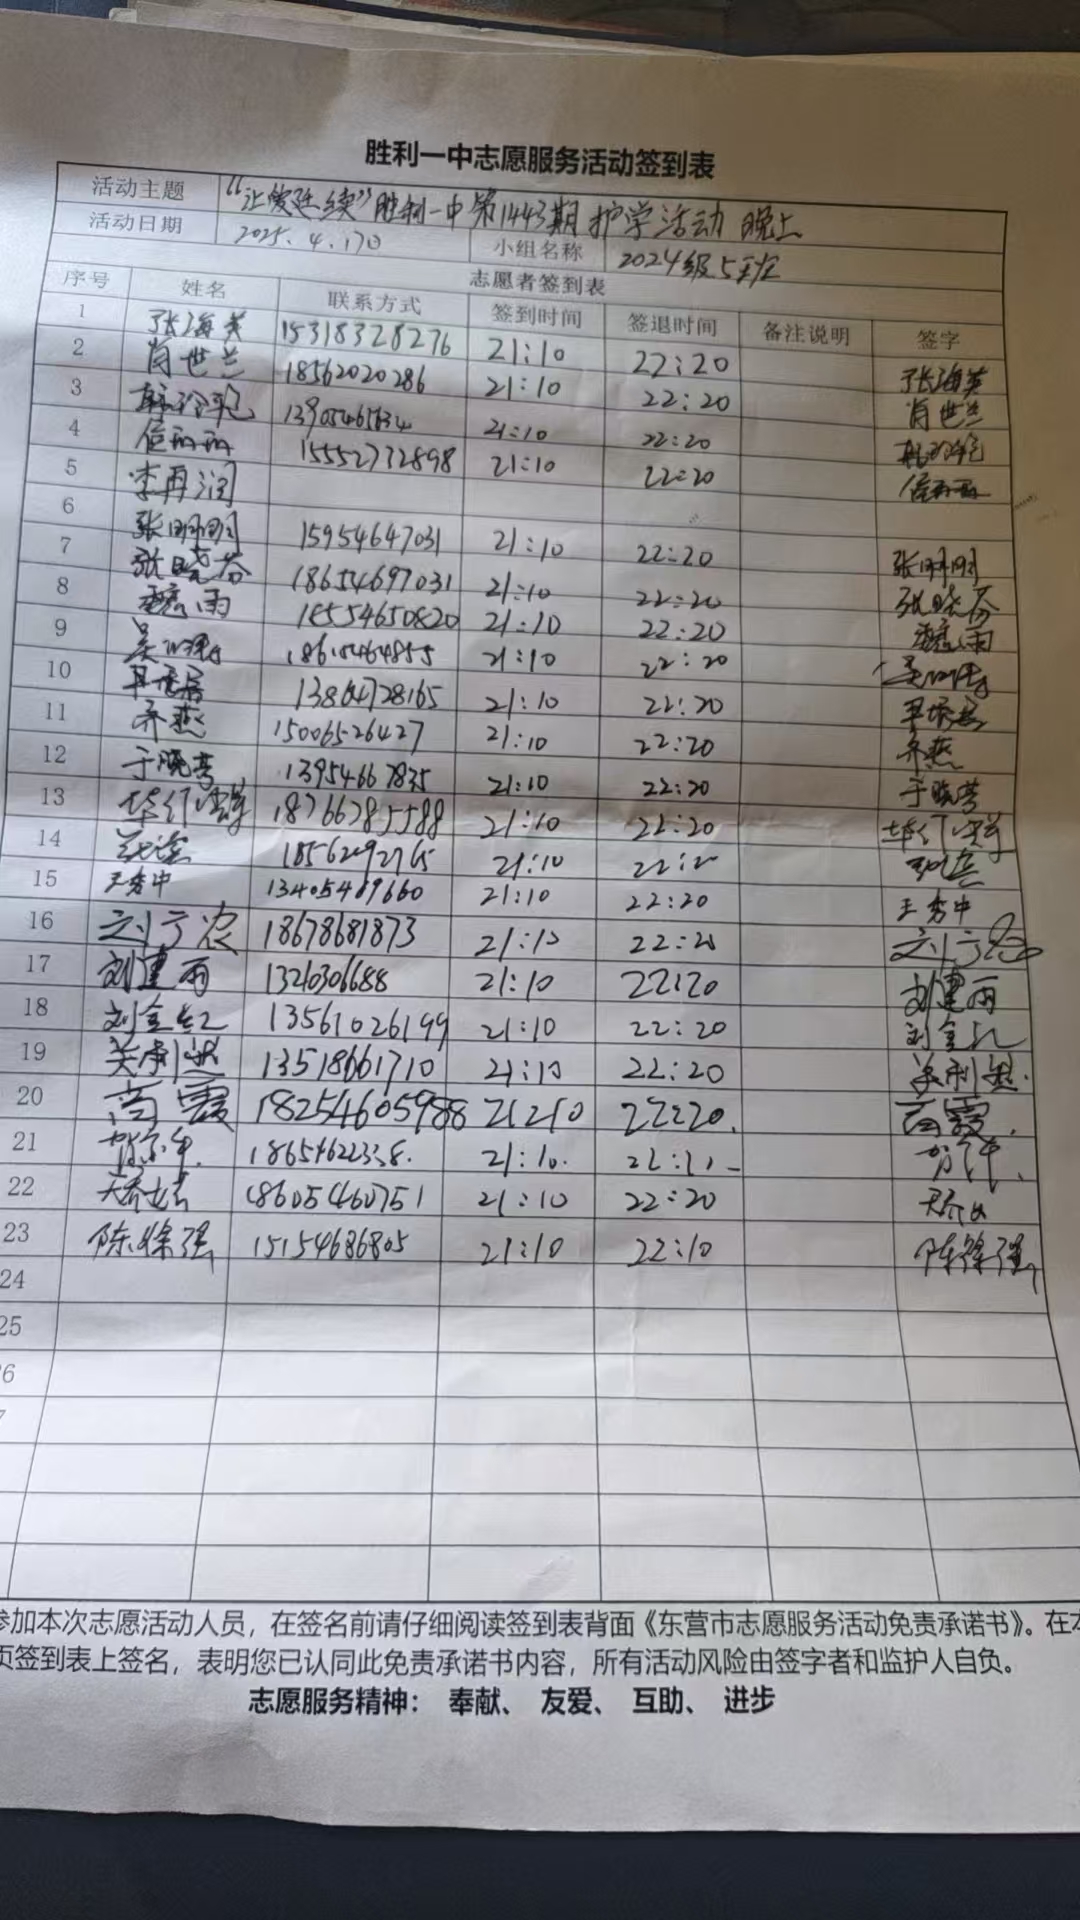 胜利一中志愿服务活动签到表
活动主题 “让爱延续”胜利一中第1443期护学活动 晚上
活动日期 2025.4.17日 小组名称 2024级5班
志愿者签到表
序号 姓名 联系方式 签到时间 签退时间 备注说明 签字
1 张海英 15318328276 21:10 22:20 张海英
2 肖世兰 18562020286 21:10 22:20 肖世兰
3 21:10 22:20
4 信丽丽 15552732898 21:10 22:20 信丽丽
5 李再润
6 张明明 15954647031 21:10 22:20 张明明
7 张晓芬 18654697031 21:10 22:20 张晓芬
8 雨 18554650820 21:10 22:20 雨
9 吴 21:10 22:20 吴
10 13864728165 21:10 22:20
11 齐燕 15006526427 21:10 22:20 齐燕
12 于晓燕 13954667835 21:10 22:20 于晓燕
13 18766285588 21:10 22:20
14 18562492765 21:10
15 王秀中 13405469660 21:10 22:20 王秀中
16 刘广 18678681873 21:10 22:20 刘广
17 刘建雨 1326306688 21:10 22:20 刘建雨
18 刘金红 13561026199 21:10 22:20 刘金红
19 13518661710 21:10 22:20
20 高霞 18254605988 21210 22:20. 高霞.
21 18654622338. 21:10.
22 18605460751 21:10 22:20
23 陈徐强 15154686805 21:10 22:10 陈徐强
24
25
参加本次志愿活动人员，在签名前请仔细阅读签到表背面《东营市志愿服务活动免责承诺书》。在本
页签到表上签名，表明您已认同此免责承诺书内容，所有活动风险由签字者和监护人自负。
志愿服务精神： 奉献、 友爱、 互助、 进步